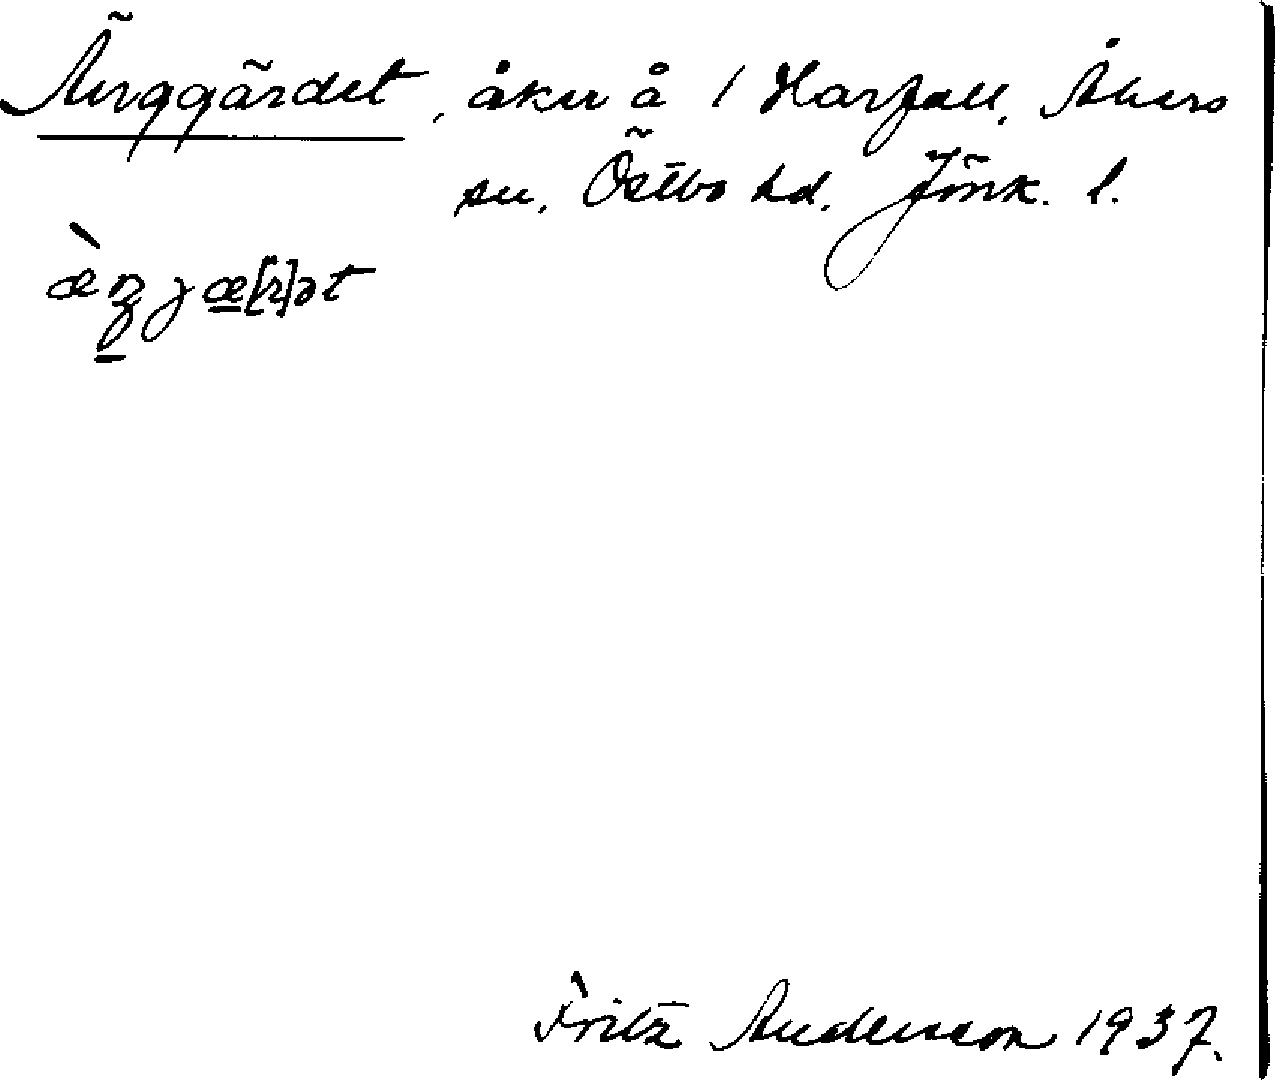 Änggärdet, åker å 1 Harfall, Åkers
sn, Östbo hd. Jönk. l.
Fritz Andersson 1937.